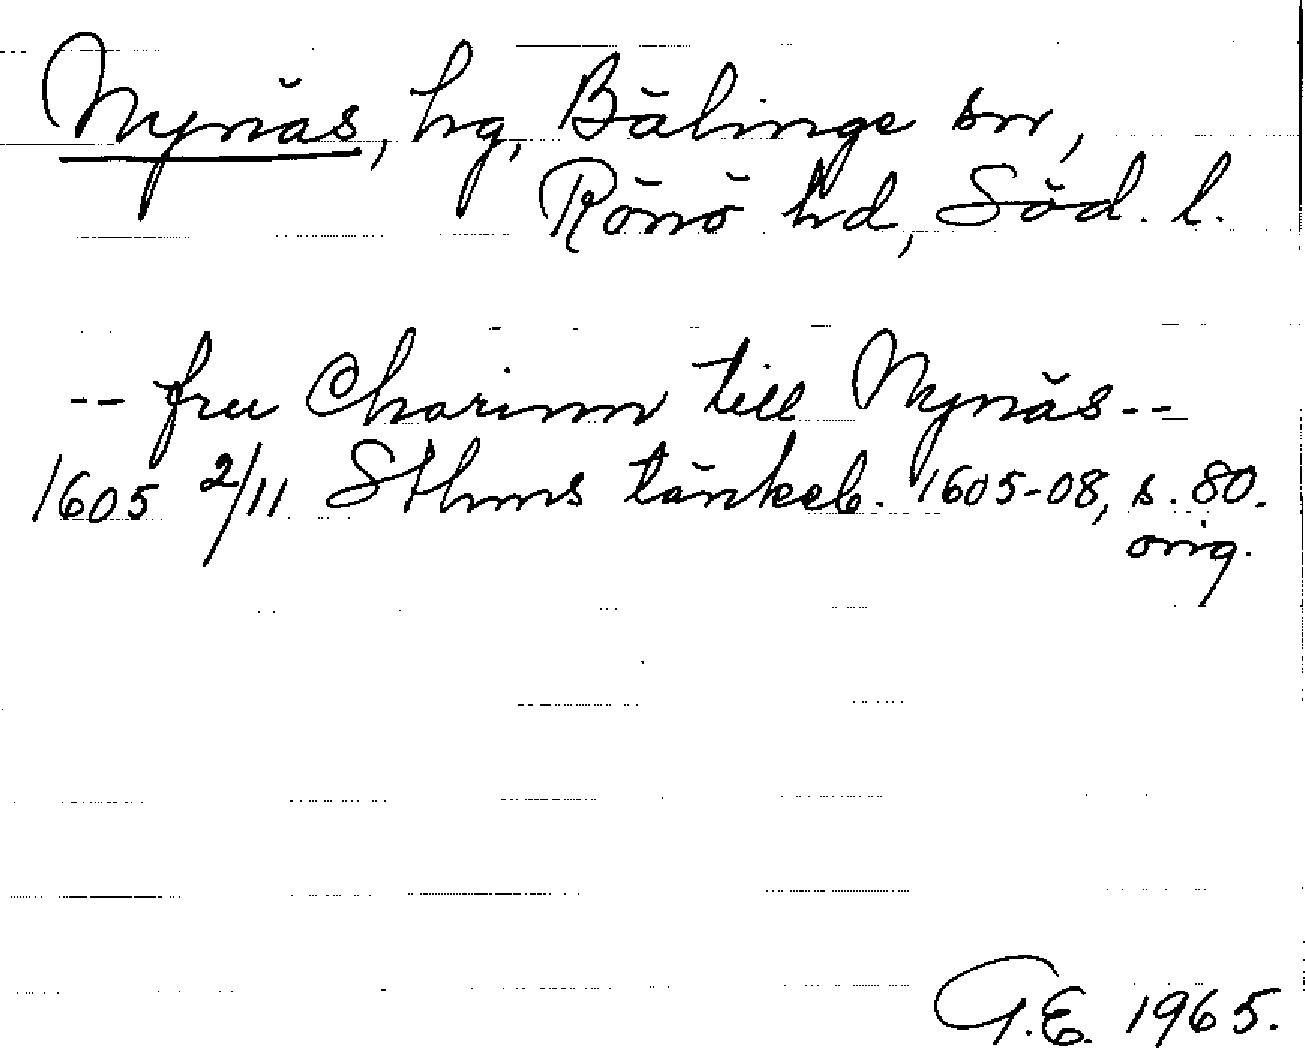 Nynäs, hg, Bälinge sn,
Rönö hd, Söd. l.
-- fru Charinn till Nynäs --
1605 2/11 Sthms tänkeb. 1605-08, s. 80.
orig.
G.E. 1965.